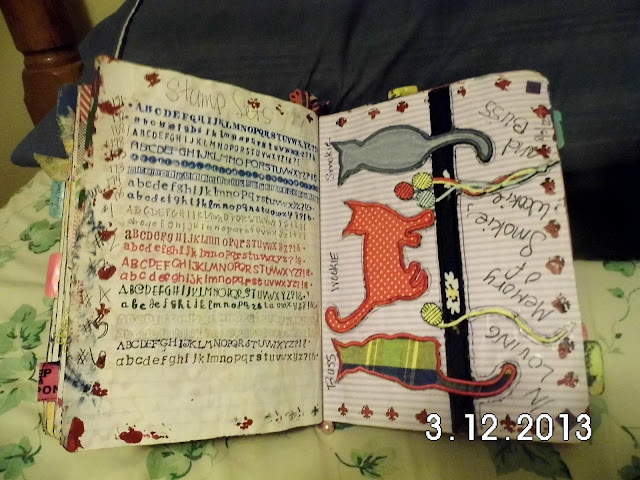 Stamp Sets
ABCDEFGHIJKLMNOPQRSTUVWXYZ
abcdefghijklmnopqrstuvwxyz
ABCDEFGHIJKLMNOPQRSTUVWXYZ?!&
ABCDEFGHIJKLMNOPQRSTUVWXYZ
abcdefghijklmnopqrstuvwxyz
ABCDEFGHIJKLMNOPQRSTUVWXYZ?!&
abcdefghijklmnopqrstuvwxyz
ABCDEFGHIJKLMNOPQRSTUVWXYZ?!&
abcdefghijklmnopqrstuvwxyz
ABCDEFGHIJKLMNOPQRSTUVWXYZ?!&
abcdefghijklmnopqrstuvwxyz
ABCDEFGHIJKLMNOPQRSTUVWXYZ?!&
abcdefghijklmnopqrstuvwxyz
Smokie
Wookie
Buss
IN LOVING
Memory
of
Smokie,
Wookie
and
Buss
3.12.2013